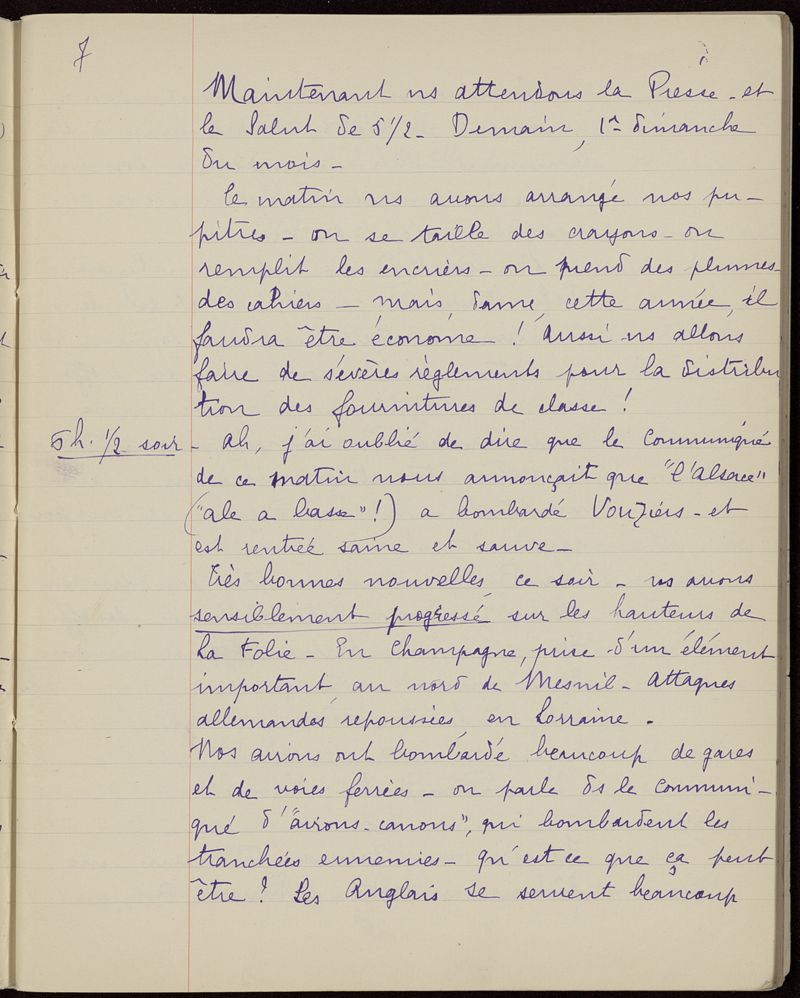 7
Maintenant ns attendons la Presse - et
le Salut de 5 1/2 - Demain, 1er dimanche
du mois -
Le matin ns avons arrangé nos pu-
pitres - on se taille des crayons - on
remplit les encriers - on prend des plumes -
des cahiers - mais, dame, cette année, il
faudra être économe ! Aussi ns allons
faire de sévères règlements pour la distribu
tion des fournitures de classe !
5h. 1/2 soir - Ah, j'ai oublié de dire que le Communiqué
de ce matin nous annonçait que "l'Alsace"
("ale a basse" !) a bombardé Vouziers - et
est rentrée saine et sauve -
Très bonnes nouvelles ce soir - ns avons
sensiblement progressé sur les hauteurs de
La Folie - En Champagne, prise d'un élément
important au nord de Mesnil - Attaques
allemandes repoussées en Lorraine -
Nos avions ont bombardé beaucoup de gares
et de voies ferrées - on parle ds le communi-
qué d'"avions-canons", qui bombardent les
tranchées ennemies - qu'est ce que ça peut
être ? Les Anglais se servent beaucoup